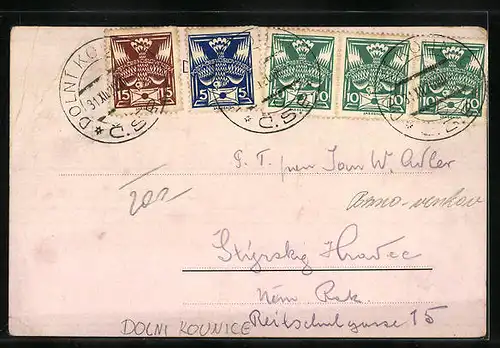 DOLNÍ KO
31.XII
Č.S.
15 15
5 5
10 10
10 10
10 10
P. T. pan Jan W. Adler
200
Brno-venkov
Štýrský Hradec
Něm. Rak.
Reitschulgasse 15
DOLNI KOUNICE